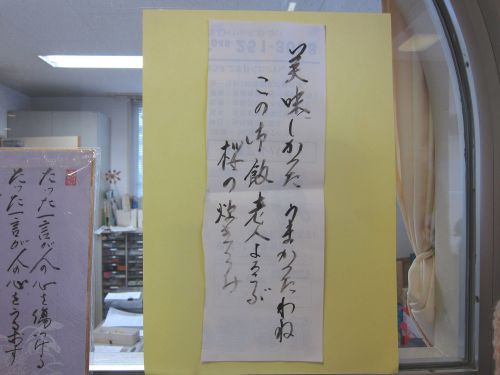 美味しかった うまかったわね
この御飯老人よろこぶ
桜の炊きこみ
たった一言が人の心を傷つける
たった一言が人の心をうるおす